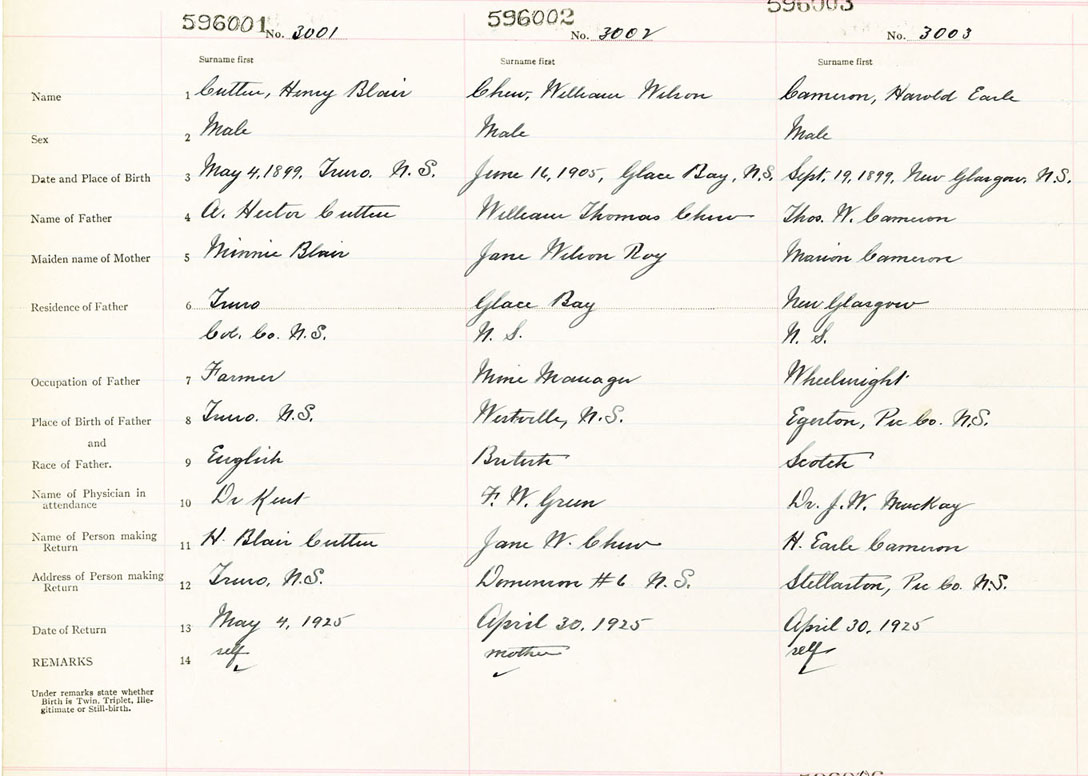 596001 No. 3001
596002 No. 3002
596003 No. 3003
Surname first Surname first Surname first
Name 1 Cutten, Henry Blair Chew, William Wilson Cameron, Harold Earle
Sex 2 Male Male Male
Date and Place of Birth 3 May 4, 1899, Truro. N.S. June 16, 1905, Glace Bay, N.S. Sept. 19, 1899, New Glasgow, N.S.
Name of Father 4 A. Hector Cutten William Thomas Chew Thos. W. Cameron
Maiden name of Mother 5 Minnie Blair Jane Wilson Roy Marion Cameron
Residence of Father 6 Truro Glace Bay New Glasgow
Col. Co. N.S. N. S. N. S.
Occupation of Father 7 Farmer Mine Manager Wheelwright
Place of Birth of Father 8 Truro. N.S. Westville, N.S. Egerton, Pic Co. N.S.
and
Race of Father. 9 English British Scotch
Name of Physician in attendance 10 Dr Kent F. W. Green Dr. J. W. MacKay
Name of Person making Return 11 H. Blair Cutten Jane W. Chew H. Earle Cameron
Address of Person making Return 12 Truro, N.S. Dominion #6 N.S. Stellarton, Pic Co. N.S.
Date of Return 13 May 4, 1925 April 30, 1925 April 30, 1925
REMARKS 14 self mother self
Under remarks state whether
Birth is Twin, Triplet, Ille-
gitimate or Still-birth.